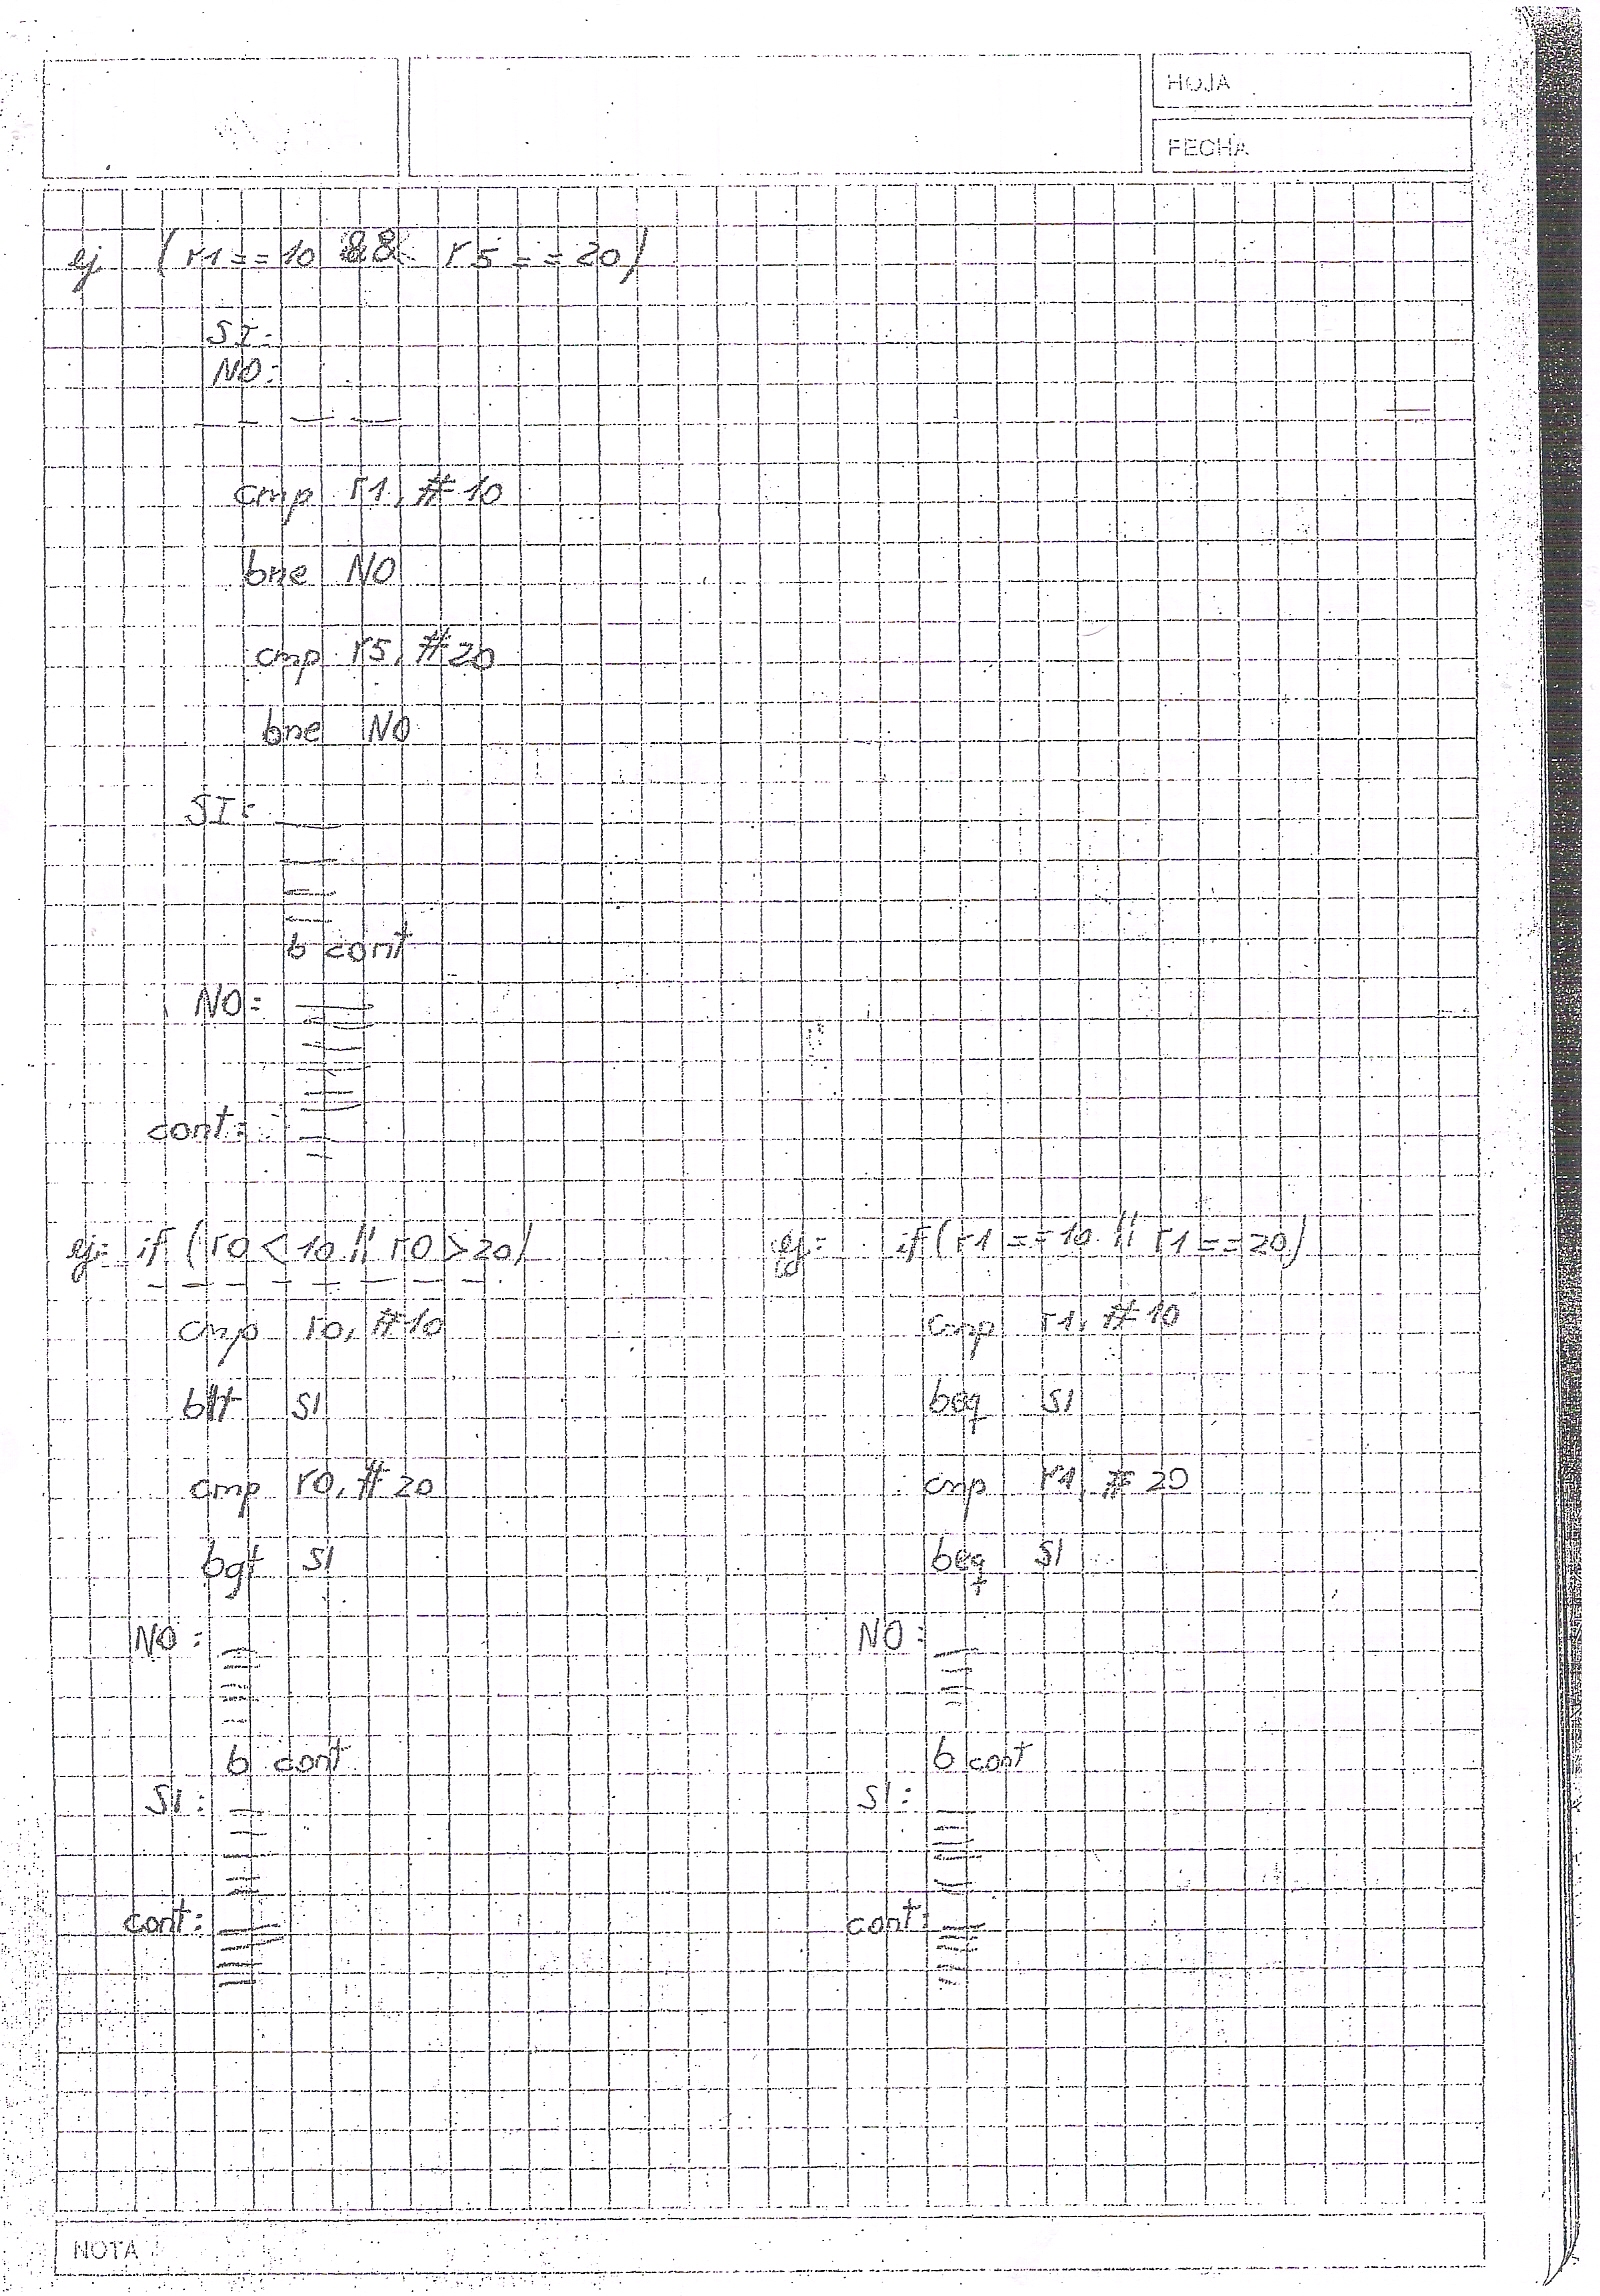 HOJA
FECHA
ej (r1==10 && r5==20)
SI:
NO:
cmp r1, #10
bne NO
cmp r5, #20
bne NO
SI:
b cont
NO:
cont:
ej: if (r0<10 || r0>20)
cmp r0, #10
blt SI
cmp r0, #20
bgt SI
NO:
b cont
SI:
cont:
ej: if (r1==10 || r1==20)
cmp r1, #10
beq SI
cmp r1, #20
beq SI
NO:
b cont
SI:
cont:
NOTA